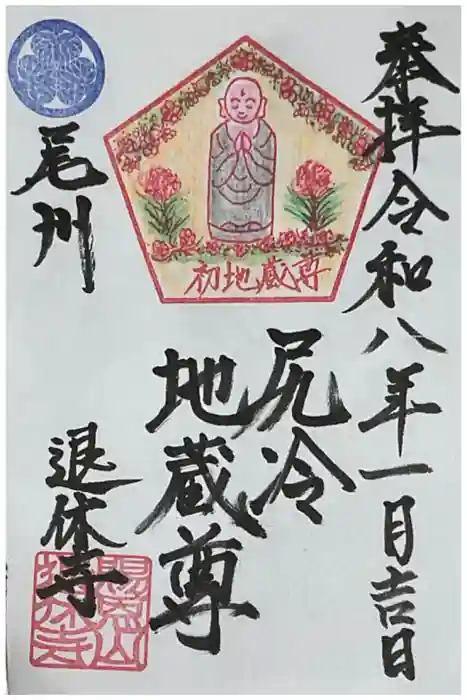 奉拝令和八年一月吉日
初地蔵尊
尻冷
地蔵尊
尾州
退休寺